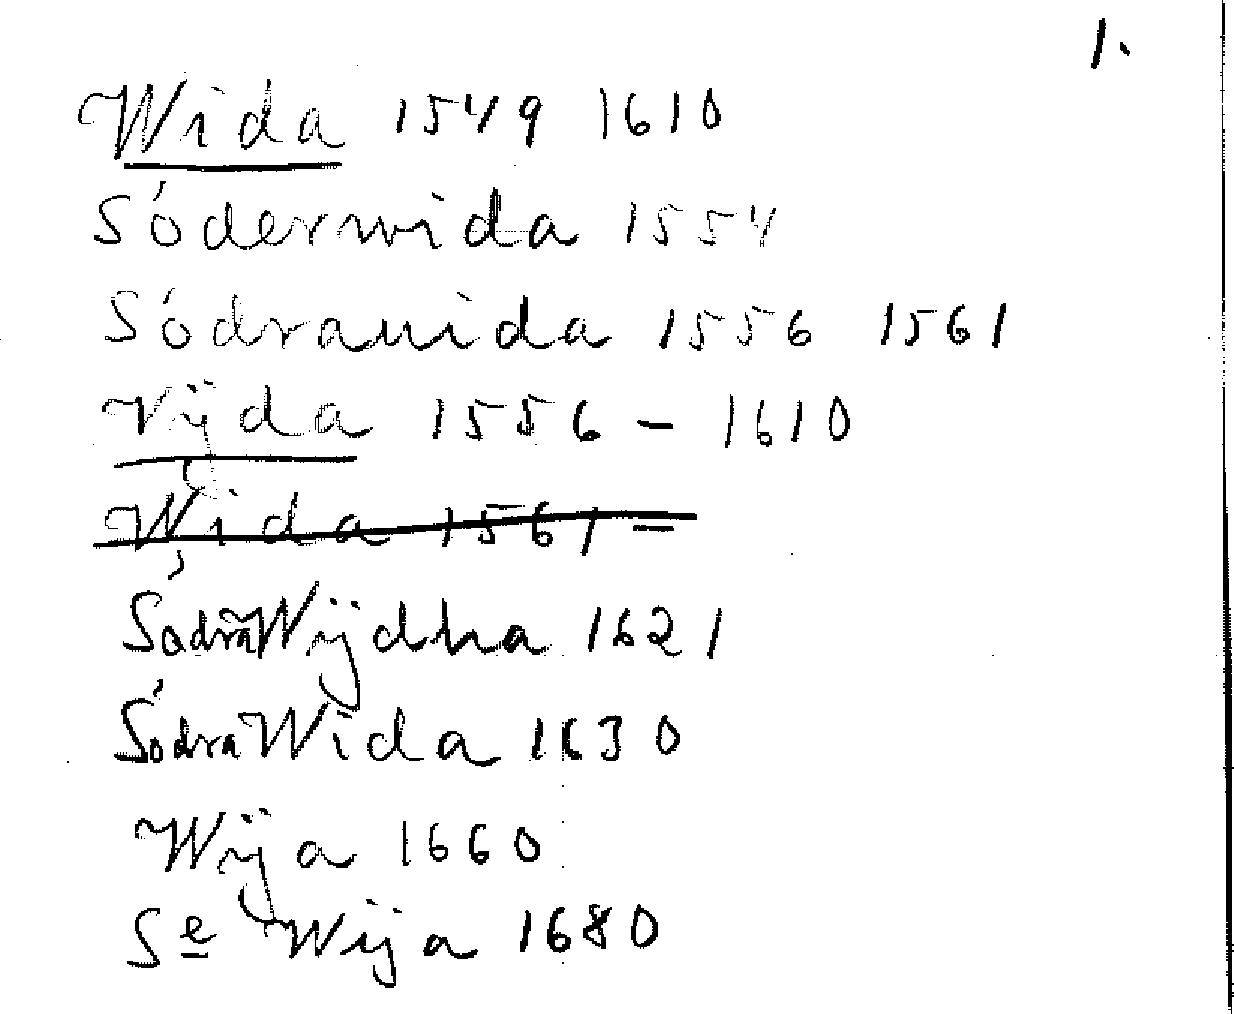 1.
Wida 1549 1610
Söderwida 1554
Södrawida 1556 1561
Vijda 1556 - 1610
Wida 1561 -
Södra Wijdha 1621
Södra Wida 1630
Wija 1660
Se Wija 1680